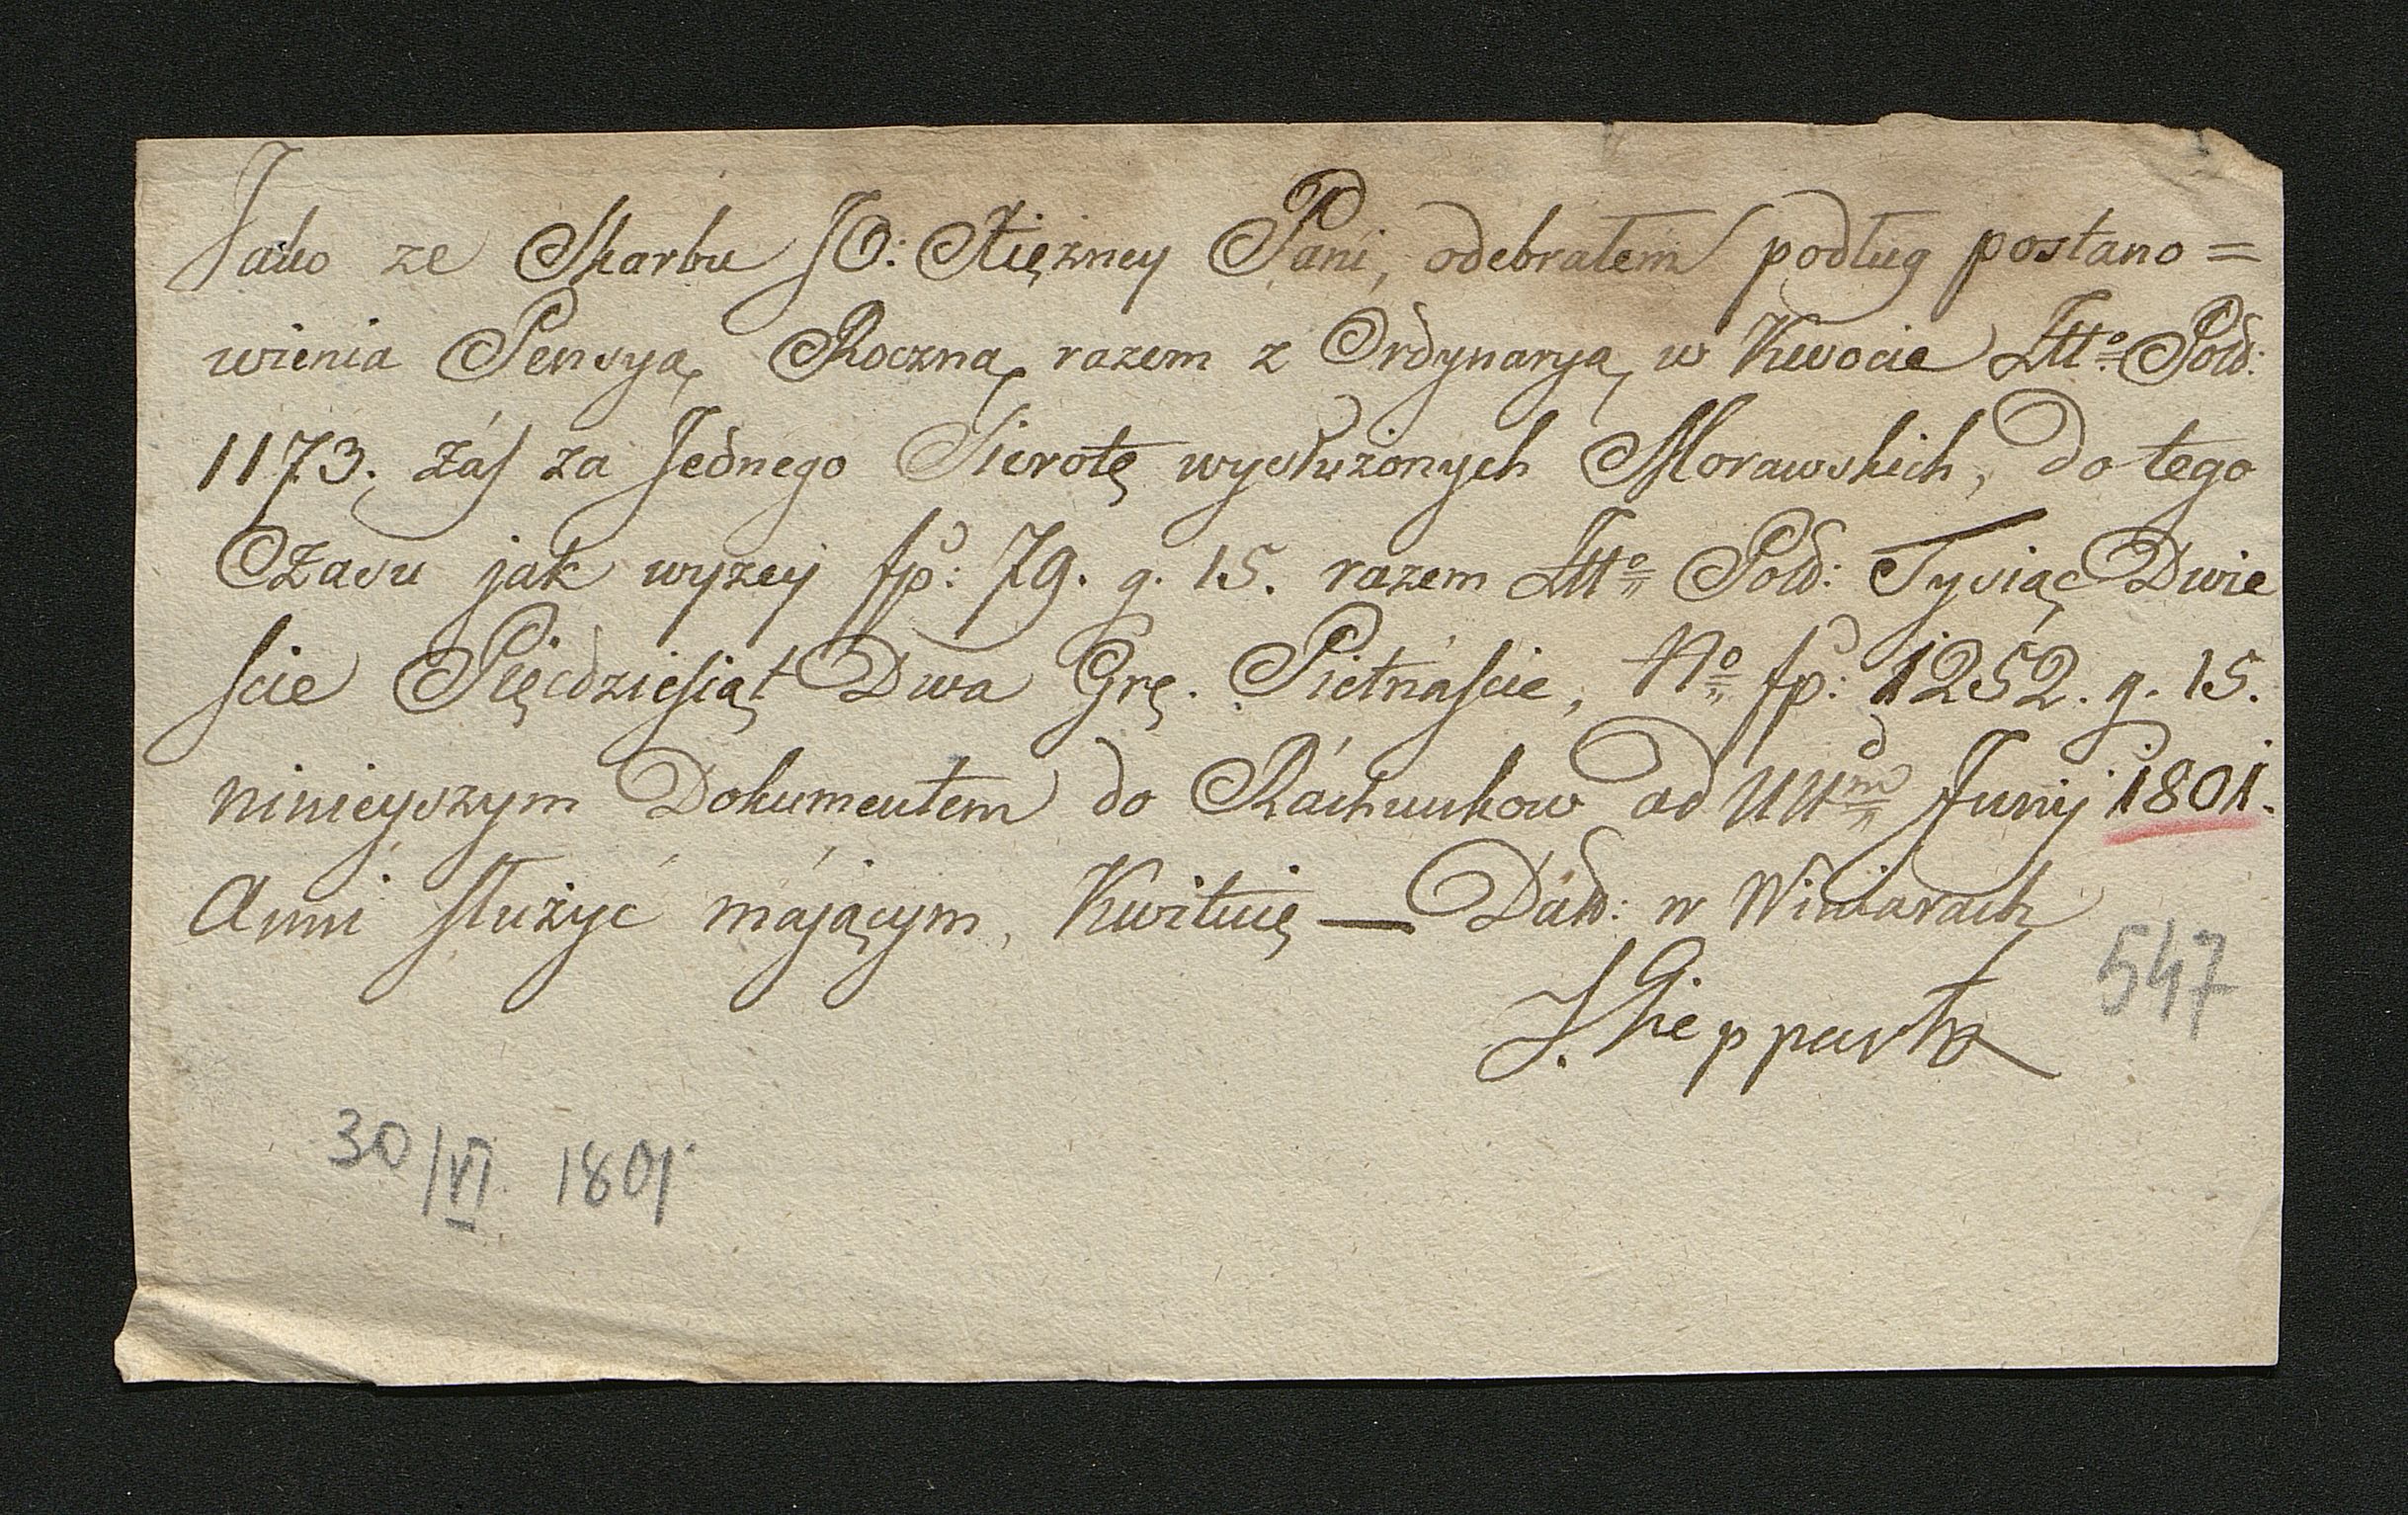 Jako ze Skarbu JO: Xiężney Pani, odebrałem podług postano=
wienia Pensyą Roczną razem z Ordynaryą w Kwocie Ztto Pold:
1173. zaś za Jednego Sierotę wysłużonych Morawskich, do tego
Czasu jak wyzey fp: 79. g. 15. razem Ztto Pold: Tysiąc Dwie
ście Pięćdziesiąt Dwa Grę. Pietnaście, No fp: 1252. g. 15.
ninieyszym Dokumentem do Ráchunkow ad Junij 1801.
Anni służyć mającym, Kwituię — Dátt: w Winiarach
547
30/VI 1801